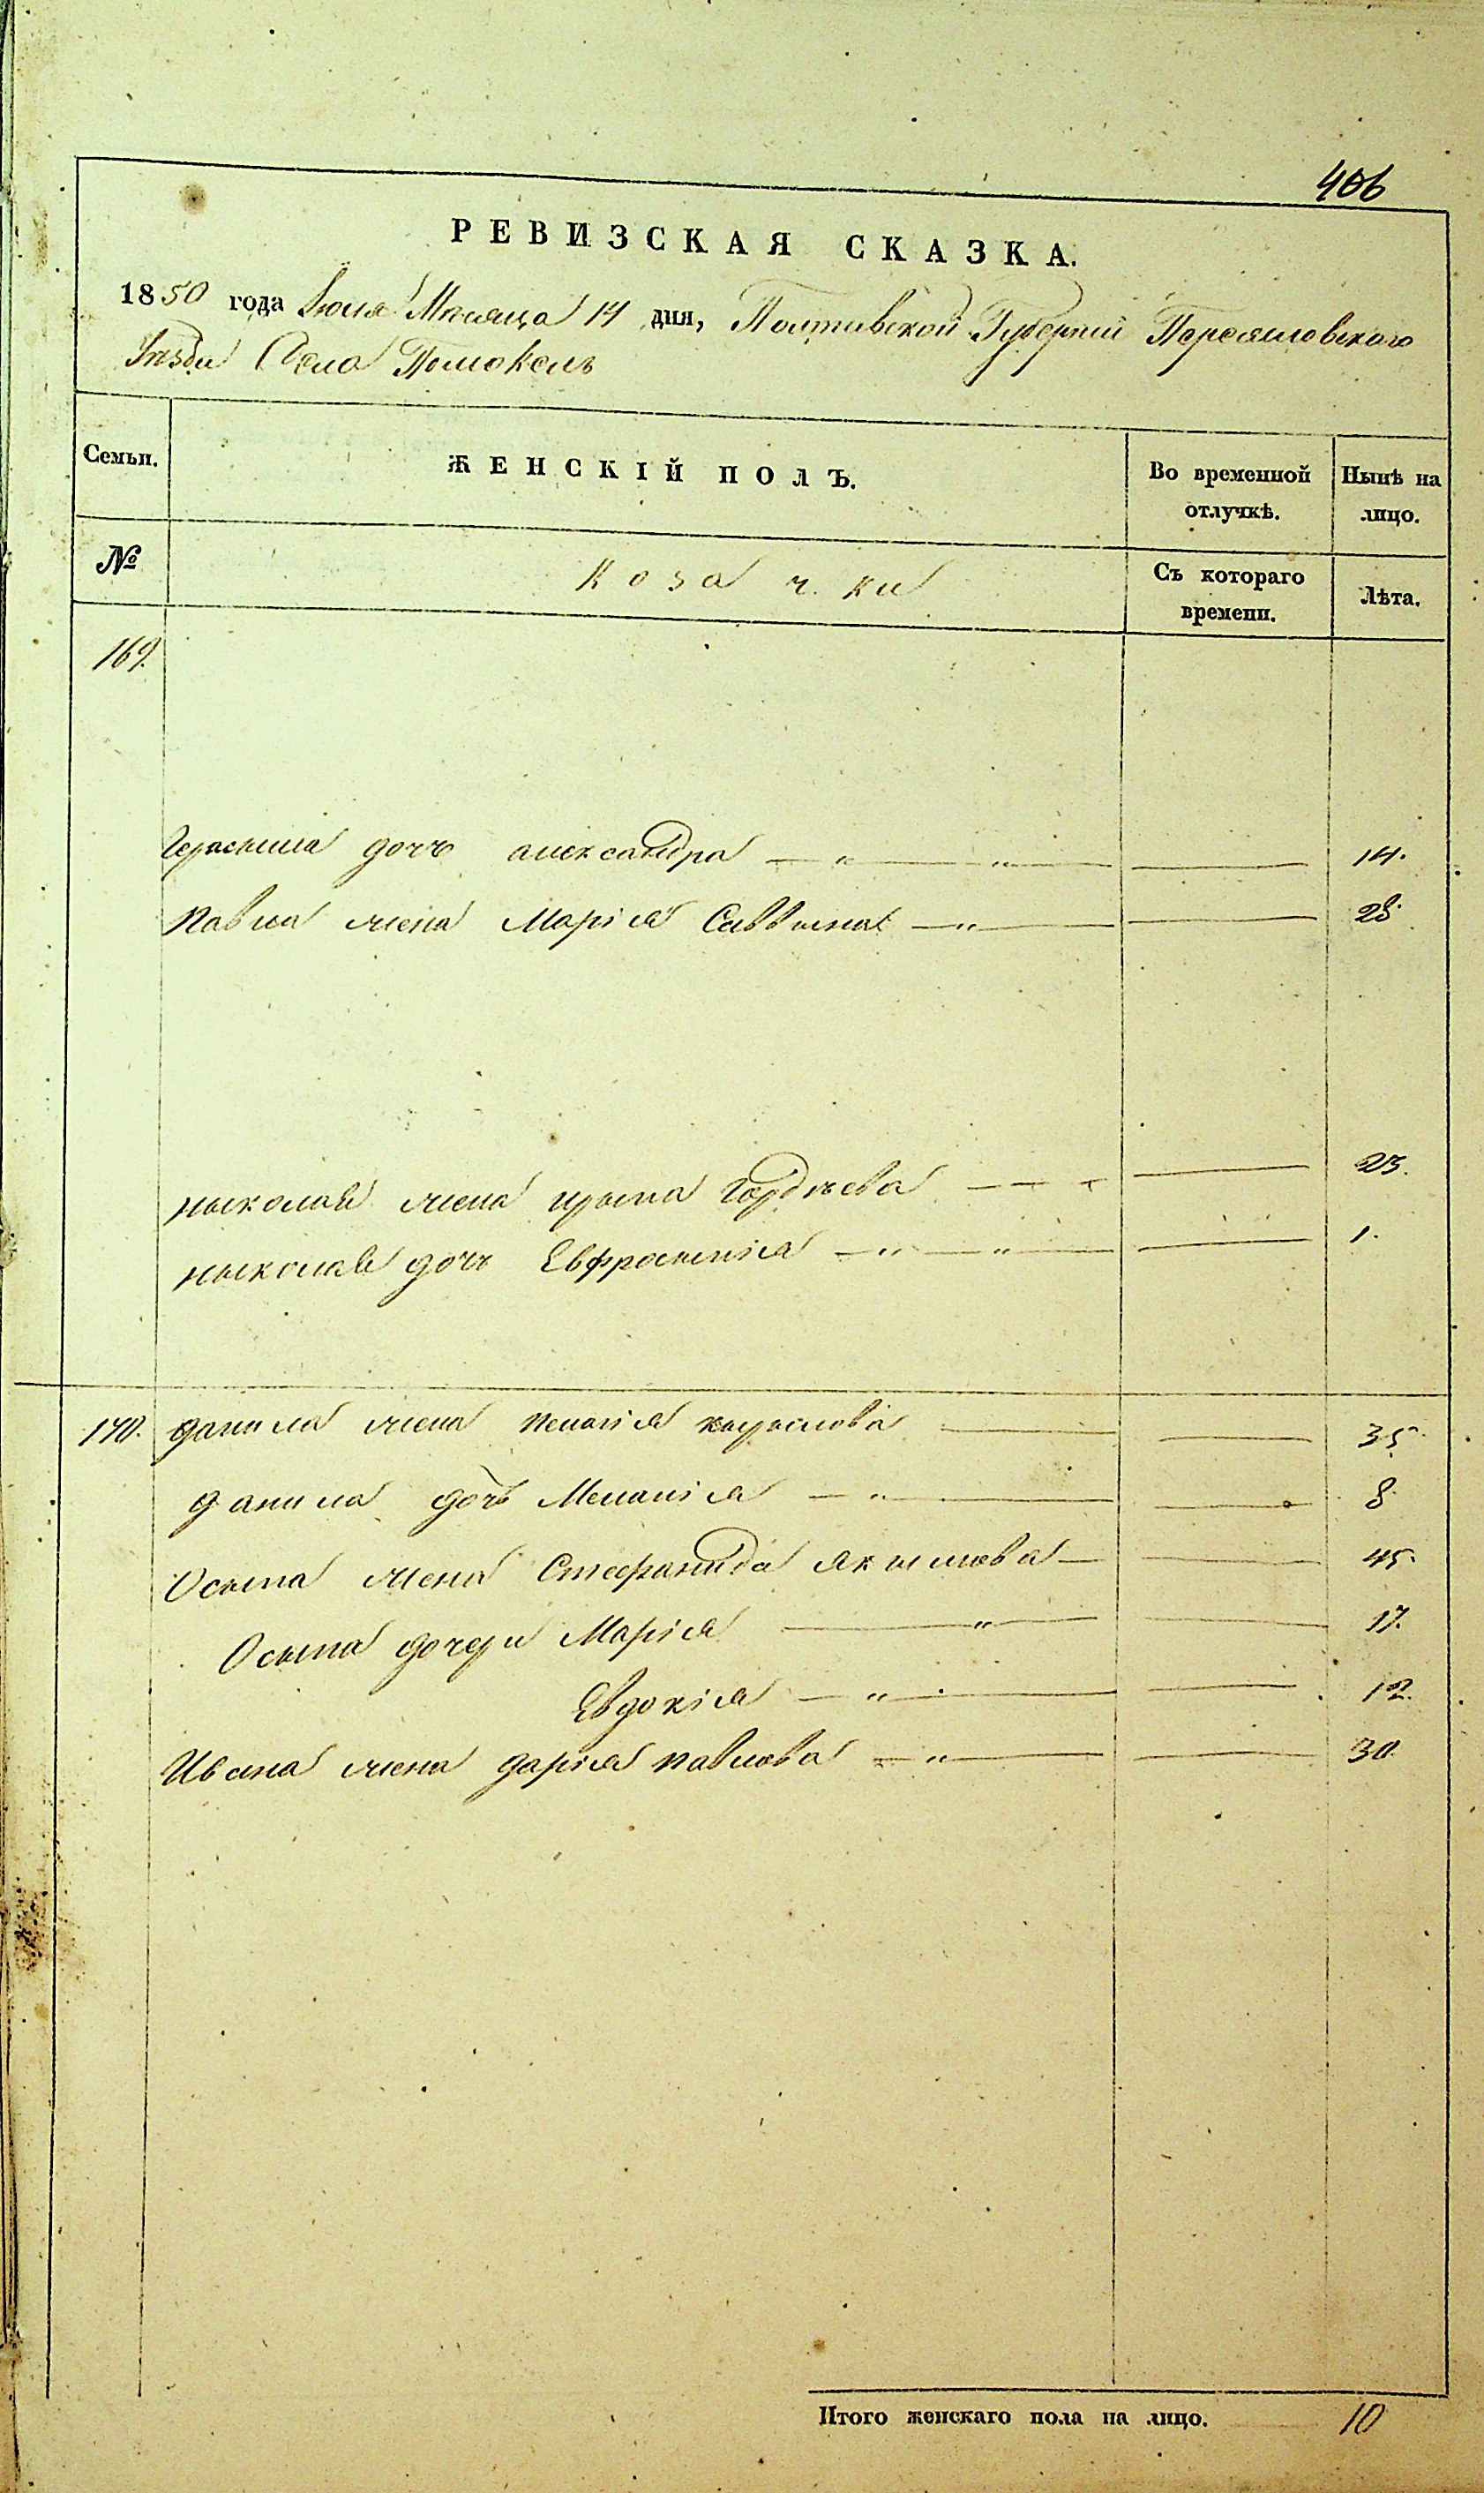 406
РЕВИЗСКАЯ СКАЗКА.
1850 года Июля Месяца 14 дня, Полтавской Губернии Переяславского
Уезда Села Помокель
Семьи.
ЖЕНСКІЙ ПОЛЪ.
Во временной отлучкѣ.
Нынѣ на лицо.
№
Козачки
Съ котораго времени.
Лѣта.
169.
Герасыма дочь александра — „ — „ — 14.
Павла жена Марія Саввына — „ — 28.
ныколая жена ирына Гордѣева — — 23.
ныколая дочь Евфросинія — „ — „ — 1.
170. данила жена пелагія кырылова — 35.
данила дочь Меланія — „ — 8
Осыпа жена Стефанида якымова — 45.
Осыпа дочери Марія — „ — 17.
Евдокія — „ — 12.
Ивана жена дарія павлова — „ — 30.
Итого женскаго пола на лицо. 10